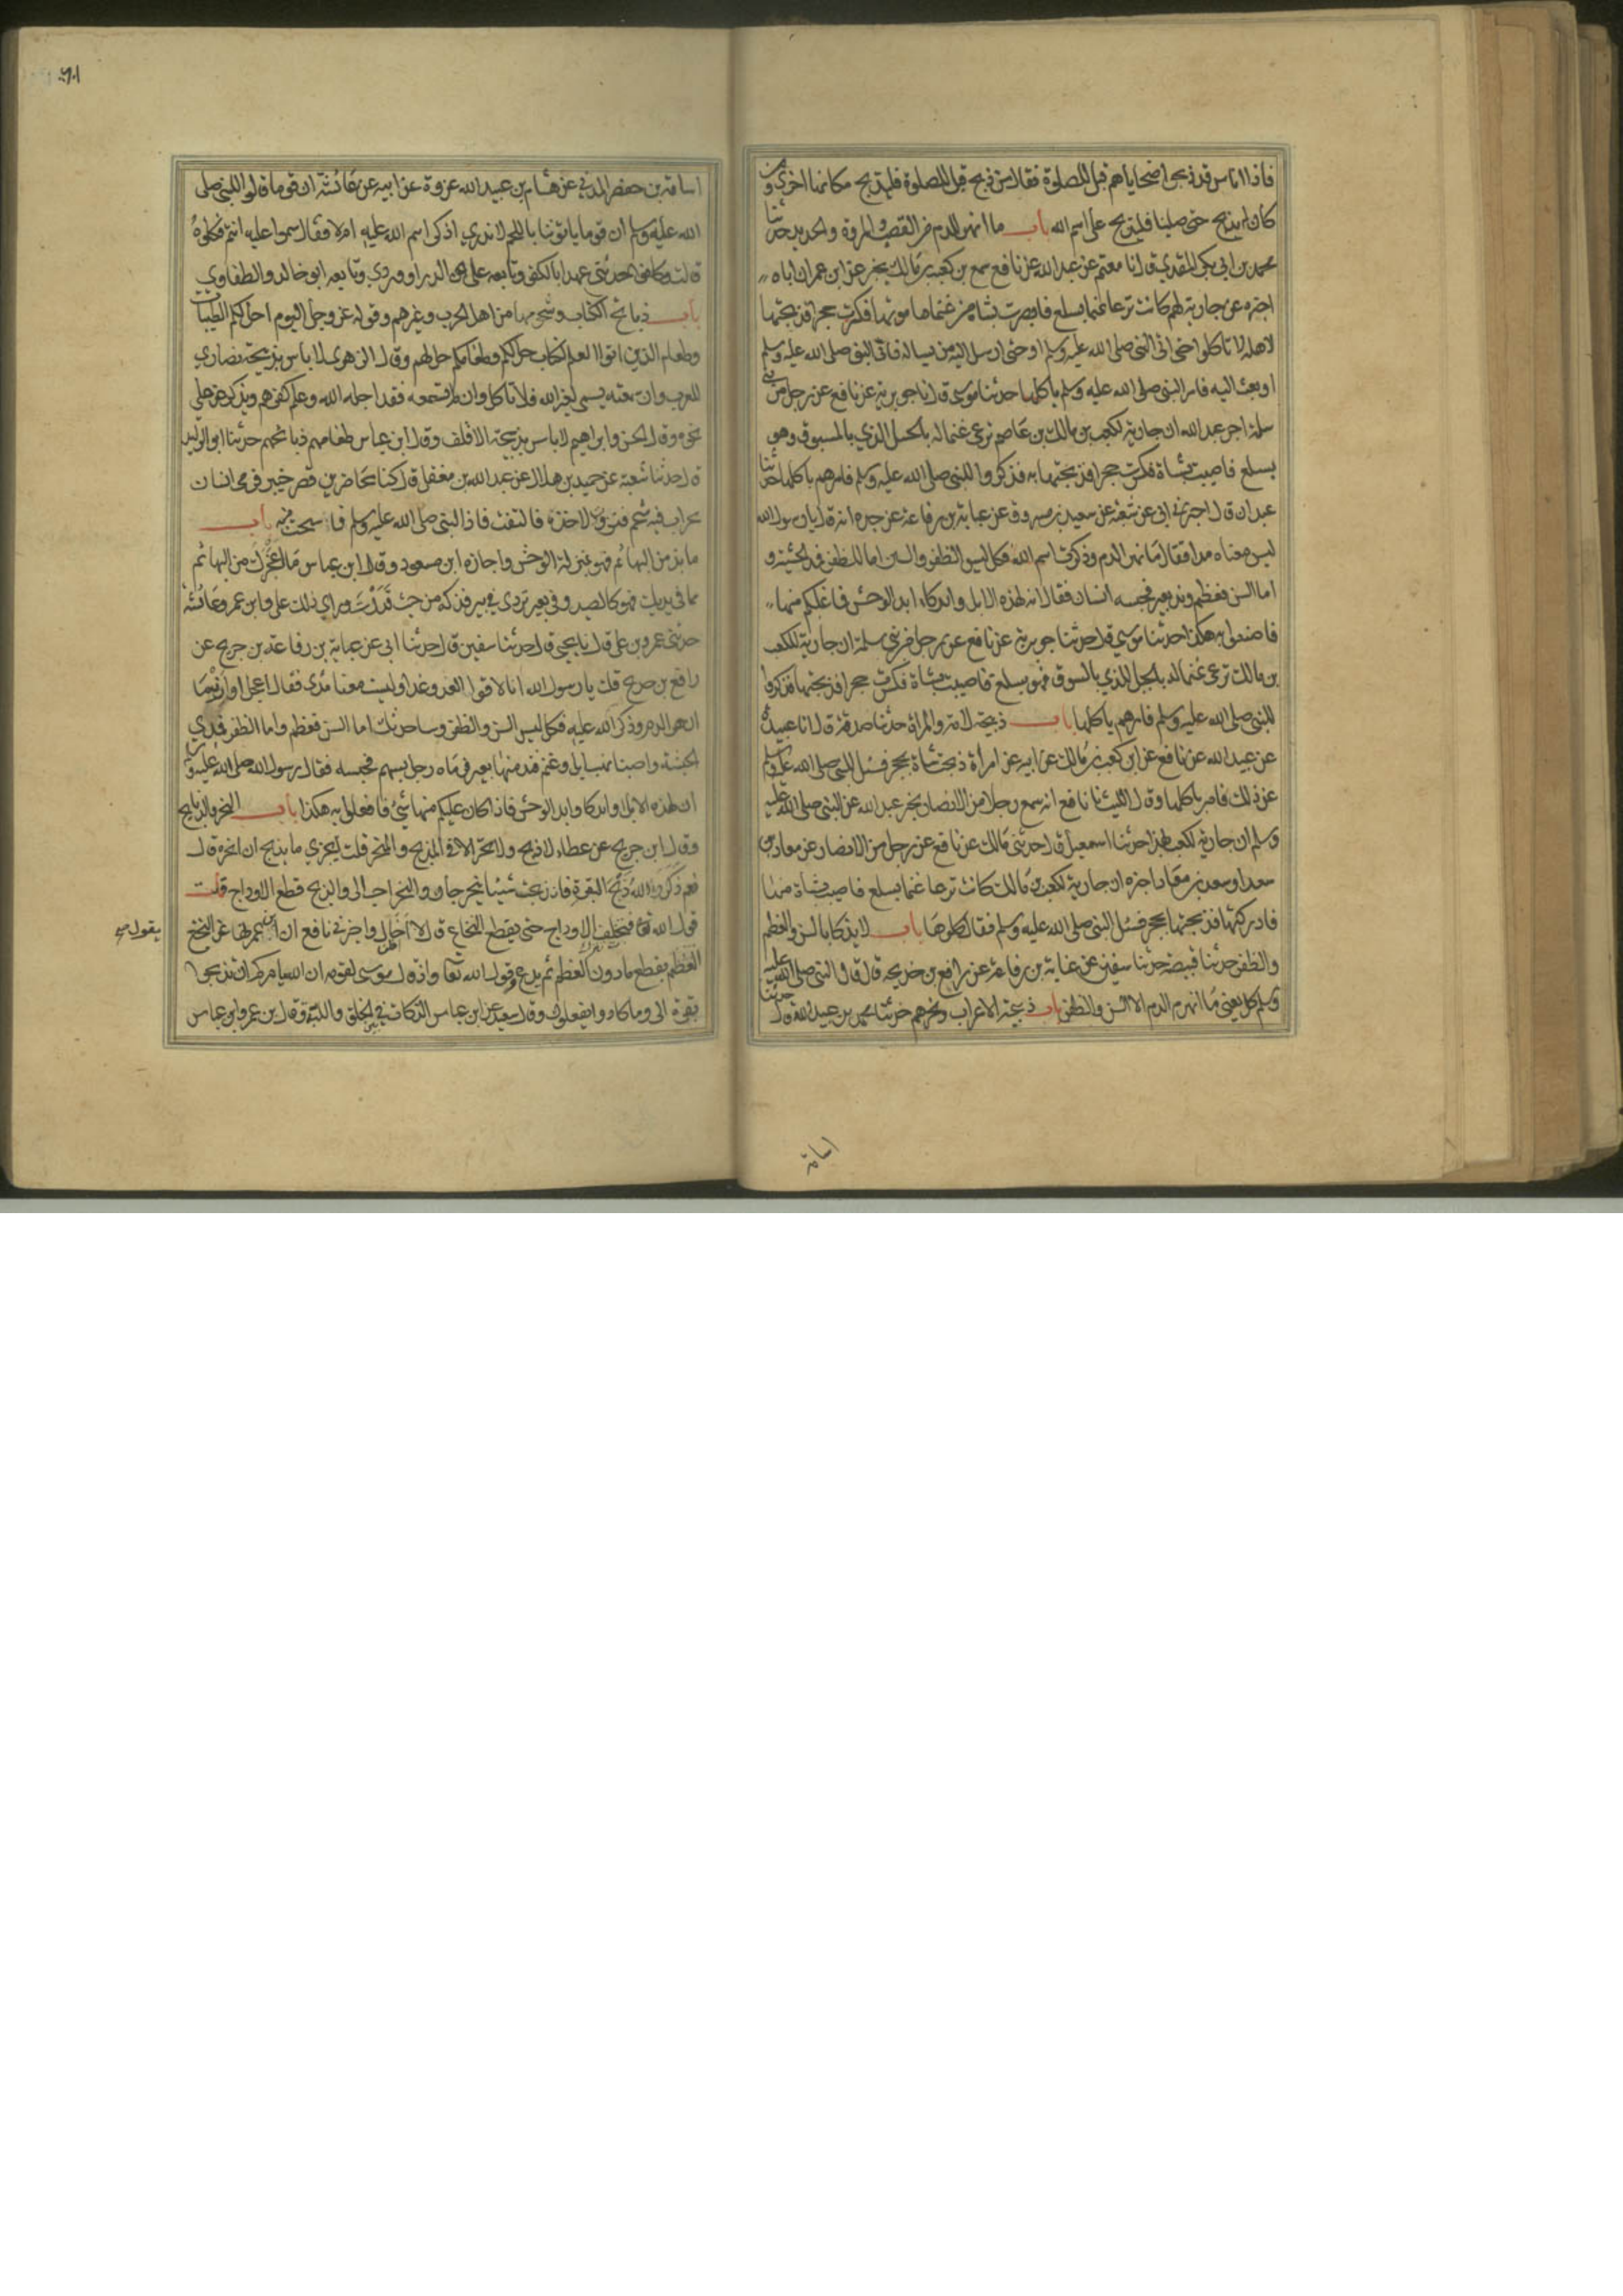 فاذا اناس قد ذبحوا ضحاياهم قبل الصلوة فقال من ذبح قبل الصلوة فليذبح مكانها اخرى ومن
كان لم يذبح حتى صلينا فليذبح على اسم الله باب ما انهر الدم من القصب والمروة والحديد حدثنا
محمد بن ابي بكر المقدمي قال انا معتمر عن عبد الله عن نافع سمع بن كعب بن مالك يخبر عن ابن عمر ان اباه
اخبره عن جارية لهم كانت ترعا غنما بسلع فابصرت بشاة من غنمها موتها فكسرت حجرا فذبحتها
لاهله لا تاكلوا حتى اتى النبي صلى الله عليه وسلم او حتى ارسل اليه من يساله فاتى النبي صلى الله عليه وسلم
او بعث اليه فامر النبي صلى الله عليه وسلم باكلها حدثنا موسى قال انا جويرية عن نافع عن رجل من بني
سلمة اخبر عبد الله ان جارية لكعب بن مالك بن عاصم ترعى غنما له بالجبل الذي بالسوق وهو
بسلع فاصيبت شاة فكسرت حجرا فذبحتها به فذكروا للنبي صلى الله عليه وسلم فامرهم باكلها حدثنا
عبدان قال اخبرني ابي عن شعبة عن سعيد بن مسروق عن عباية بن رفاعة عن جده انه قال يا رسول الله
ليس معناه مدا فقال ما انهر الدم وذكرت اسم الله فكل ليس الظفر والسن اما الظفر فمدى الحبشة و
اما السن فعظم وند بعير فحبسه انسان فقال ان لهذه الابل اوابد كاوابد الوحش فما غلبكم منها
فاصنعوا به هكذا حدثنا موسى قال حدثنا جويرية عن نافع عن رجل من بني سلمة ان جارية لكعب
بن مالك ترعى غنما له بالجبل الذي بالسوق فهو بسلع فاصيبت شاة فكسرت حجرا فذبحتها فذكروا
للنبي صلى الله عليه وسلم فامرهم باكلها باب ذبيحة الامة والمراة حدثنا صدقة قال انا عبدة
عن عبيد الله عن نافع عن ابن كعب بن مالك عن ابيه عن امراة ذبحت شاة بحجر فسئل النبي صلى الله عليه وسلم
عن ذلك فامر باكلها وقال الليث نا نافع انه سمع رجلا من الانصار يخبر عبد الله عن النبي صلى الله عليه
وسلم ان جارية لكعب بهذا حدثنا اسمعيل قال حدثني مالك عن نافع عن رجل من الانصار عن معاذ بن
سعد او سعد بن معاذ اخبره ان جارية لكعب بن مالك كانت ترعا غنما بسلع فاصيبت شاة منها
فادركتها فذبحتها بحجر فسئل النبي صلى الله عليه وسلم فقال كلوها باب لا يذكا بالسن والعظم
والظفر حدثنا قبيصة حدثنا سفين عن عباية بن رفاعة عن رافع بن خديجه قال قال النبي صلى الله عليه
وسلم كل يعني ما انهر الدم الا السن والظفر باب ذبيحة الاعراب ونحرهم حدثنا محمد بن عبيد الله قال حدثنا
اسامة
اسامة بن حفص المدني عن هشام بن عبيد الله عروة عن ابيه عن عائشة ان قوما قالوا للنبي صلى
الله عليه وسلم ان قوما ياتوننا باللحم لا ندري اذكر اسم الله عليه ام لا فقال سموا عليه انتم وكلوه
قالت وكانوا حديثي عهد بالكفر وتابعه على عن الدراوردي وتابعه ابو خالد والطفاوي
باب ذبائح اهل الكتاب وشحومها من اهل الحرب وغيرهم وقوله عز وجل اليوم احل لكم الطيبات
وطعام الذين اوتوا الكتاب حل لكم وطعامكم حل لهم وقال الزهري لا باس بذبيحة نصارى
العرب وان سمعته يسمي لغير الله فلا تاكل وان لم تسمعه فقد احله الله وعلم كفرهم ويذكر عن علي
نحوه وقال الحسن وابراهيم لا باس بذبيحة الاقلف وقال ابن عباس طعامهم ذبائحهم حدثنا ابو الوليد
قال حدثنا شعبة عن حميد بن هلال عن عبد الله بن مغفل قال كنا محاضرين قصر خيبر فرمى انسان
بجراب فيه شحم فنزوت لاخذه فالتفت فاذا النبي صلى الله عليه وسلم فاستحييت منه باب
ما ند من البهائم فهو بمنزلة الوحش واجازه ابن مسعود وقال ابن عباس ما اعجزك من البهائم
مما في يديك فهو كالصيد وفي بعير تردى في بير فذكه من حيث قدرت وراى ذلك علي وابن عمر وعائشة
حدثني عمرو بن علي قال نا يحيى قال حدثنا سفين قال حدثنا ابي عن عباية بن رفاعة بن خديج عن
رافع بن خديج قلت يا رسول الله انا لاقوا العدو غدا وليست معنا مدى فقال اعجل او ارني ما
انهر الدم وذكر الله عليه فكل ليس السن والظفر وساحدثك اما السن فعظم واما الظفر فمدى
الحبشة واصبنا نهب ابل وغنم فند منها بعير فرماه رجل بسهم فحبسه فقال رسول الله صلى الله عليه وسلم
ان لهذه الابل اوابد كاوابد الوحش فاذا كان عليكم منها شئ فافعلوا به هكذا باب النحر والذبايح
وقال ابن جريج عن عطاء لا ذبح ولا نحر الا في المذبح والمنحر قلت ايجزي ما يذبح ان انحره قال
نعم ذكر الله ذبح البقرة فان ذبحت شيئا ينحر جاز والنحر احب الي والذبح قطع الاوداج قلت
فيخلف الاوداج حتى يقطع النخاع قال لا اخال واخبرني نافع ان ابن عمر نهى عن النخع
يقول
العظم يقطع ما دون العظم ثم يدع وقول الله تعا واذ قال موسى لقومه ان الله يامركم ان تذبحوا
بقرة الى وما كادوا يفعلون وقال سعيد عن ابن عباس الذكاة في الحلق واللبة وقال بن عمر وابن عباس